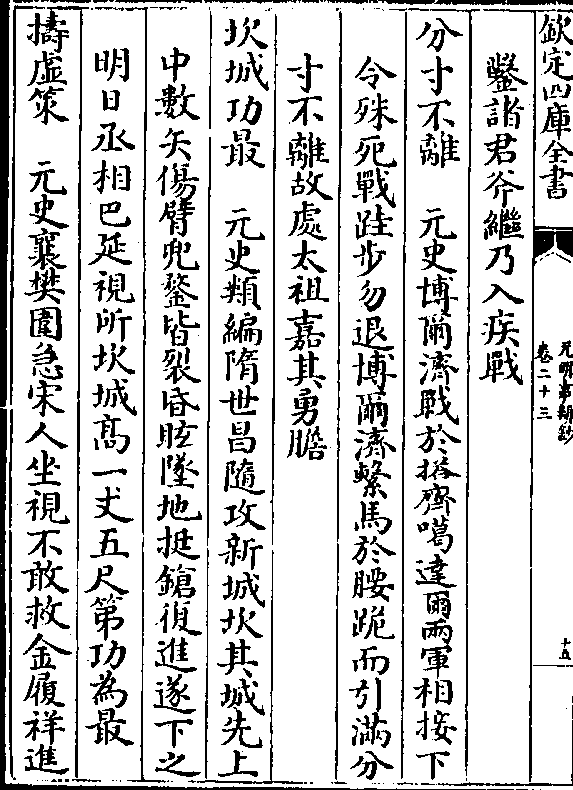 欽定四庫全書
元明事類鈔
卷二十三
十五
鏊諸君斧繼乃入疾戰
分寸不離　元史博爾濟戰於搭齊噶達爾兩軍相接下
令殊死戰跬步勿退博爾濟繫馬於腰跪而引滿分
寸不離故處太祖嘉其勇膽
坎城功最　元史類編隋世昌隨攻新城坎其城先上
中數矢傷臂兜鍪皆裂昏眩墜地挺鎗復進遂下之
明日丞相巴延視所坎城髙一丈五尺第功為最
擣虛策　元史襄樊圍急宋人坐視不敢救金履祥進